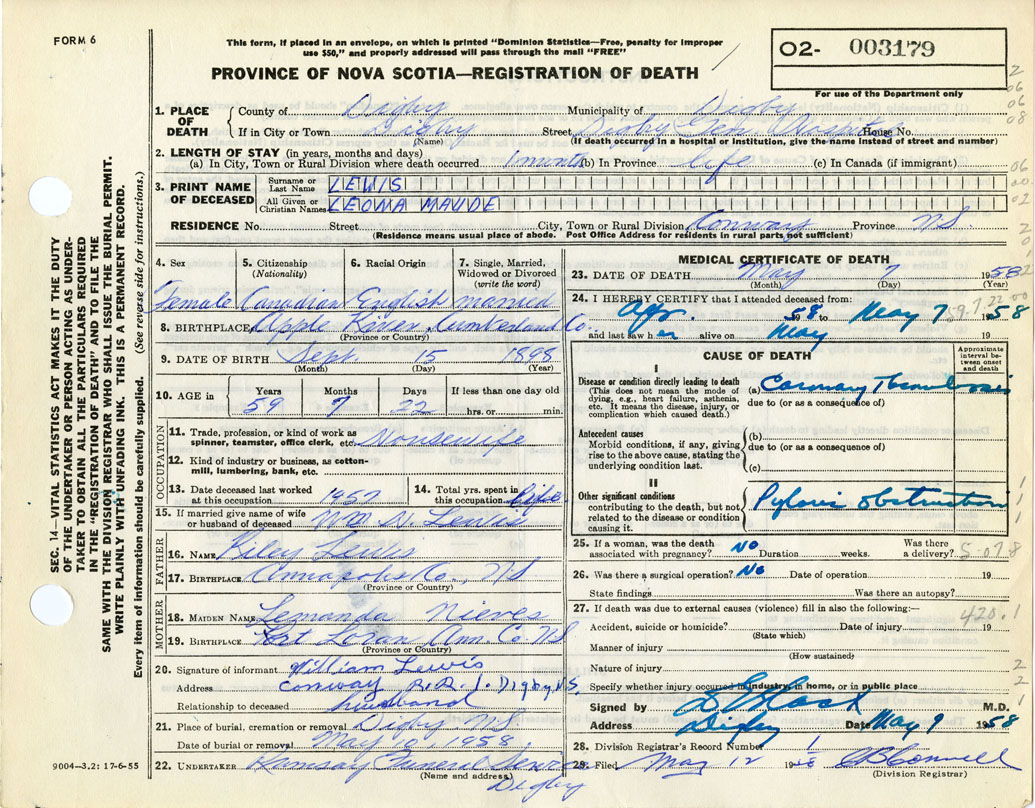 FORM 6
This form, if placed in an envelope, on which is printed "Dominion Statistics—Free, penalty for improper
use $50," and properly addressed will pass through the mail "FREE"
PROVINCE OF NOVA SCOTIA—REGISTRATION OF DEATH
O2- 003179
For use of the Department only
SEC. 14—VITAL STATISTICS ACT MAKES IT THE DUTY
OF THE UNDERTAKER OR PERSON ACTING AS UNDER-
TAKER TO OBTAIN ALL THE PARTICULARS REQUIRED
IN THE "REGISTRATION OF DEATH" AND TO FILE THE
SAME WITH THE DIVISION REGISTRAR WHO SHALL ISSUE THE BURIAL PERMIT.
WRITE PLAINLY WITH UNFADING INK. THIS IS A PERMANENT RECORD.
Every item of information should be carefully supplied. (See reverse side for instructions.)
1. PLACE OF DEATH County of Digby Municipality of Digby
If in City or Town Digby Street Digby Gen Hospital House No.
(Name) (If death occurred in a hospital or institution, give the name instead of street and number)
2. LENGTH OF STAY (in years, months and days)
(a) In City, Town or Rural Division where death occurred 1 month (b) In Province life (c) In Canada (if immigrant)
3. PRINT NAME OF DECEASED Surname or Last Name LEWIS
All Given or Christian Names LEONA MAUDE
RESIDENCE No. Street City, Town or Rural Division Conway Province NS
(Residence means usual place of abode. Post Office Address for residents in rural parts not sufficient)
4. Sex 5. Citizenship (Nationality) 6. Racial Origin 7. Single, Married, Widowed or Divorced (write the word)
Female Canadian English married
8. BIRTHPLACE Apple River, Cumberland Co.
(Province or Country)
9. DATE OF BIRTH Sept 15 1898
(Month) (Day) (Year)
10. AGE in Years Months Days If less than one day old
59 7 22 hrs. or min.
OCCUPATION
11. Trade, profession, or kind of work as
spinner, teamster, office clerk, etc. Housewife
12. Kind of industry or business, as cotton-
mill, lumbering, bank, etc.
13. Date deceased last worked at this occupation 1957 14. Total yrs. spent in this occupation life
15. If married give name of wife
or husband of deceased Wm N. Lewis
FATHER
16. NAME Riley Lewis
17. BIRTHPLACE Annapolis Co., NS
(Province or Country)
MOTHER
18. MAIDEN NAME Nieves
19. BIRTHPLACE Port Loran Ann. Co NS
(Province or Country)
20. Signature of informant William Lewis
Address Conway R.R. 1. Digby, N.S.
Relationship to deceased husband
21. Place of burial, cremation or removal Digby NS
Date of burial or removal May 10, 1958
22. UNDERTAKER Ramsay Funeral Service
(Name and address) Digby
9004—3.2: 17-6-55
MEDICAL CERTIFICATE OF DEATH
23. DATE OF DEATH May 7 1958
(Month) (Day) (Year)
24. I HEREBY CERTIFY that I attended deceased from:
Apr. 58 to May 7 1958
and last saw her alive on May
CAUSE OF DEATH
Approximate interval between onset and death
I
Disease or condition directly leading to death
(This does not mean the mode of
dying, e.g., heart failure, asthenia,
etc. It means the disease, injury, or
complication which caused death.)
(a) Coronary Thrombosis
due to (or as a consequence of)
Antecedent causes
Morbid conditions, if any, giving
rise to the above cause, stating the
underlying condition last.
(b)
due to (or as a consequence of)
(c)
II
Other significant conditions
contributing to the death, but not
related to the disease or condition
causing it.
Pyloric obstruction
25. If a woman, was the death
associated with pregnancy? No Duration weeks. Was there a delivery?
5-07.8
26. Was there a surgical operation? No Date of operation 19
State findings Was there an autopsy?
27. If death was due to external causes (violence) fill in also the following:—
420.1
Accident, suicide or homicide? Date of injury 19
(State which)
Manner of injury
(How sustained)
Nature of injury
Specify whether injury occurred in industry, in home, or in public place
Signed by M.D.
Address Digby Date May 9 1958
28. Division Registrar's Record Number
29. Filed May 12 1958
(Division Registrar)